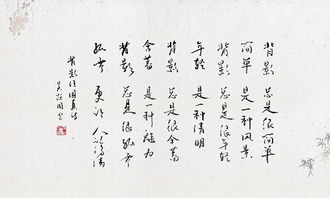 背影 总是很简单
简单 是一种风景
背影 总是很年轻
年轻 是一种清明
背影 总是很含蓄
含蓄 是一种魅力
背影 总是很孤零
孤零 更让人记得清